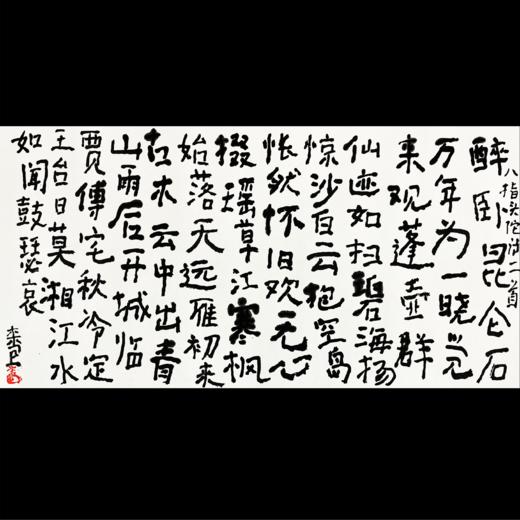 八指头陀诗二首
醉卧昆仑石
万年为一晓觉
来观蓬壶群
仙迹如扫碧海扬
惊沙白云抱空岛
怅然怀旧欢无心
掇瑶草江寒枫
始落天远雁初来
古木云中出青
山雨后开城临
贾傅宅秋冷定
王台日莫湘江水
如闻鼓瑟哀